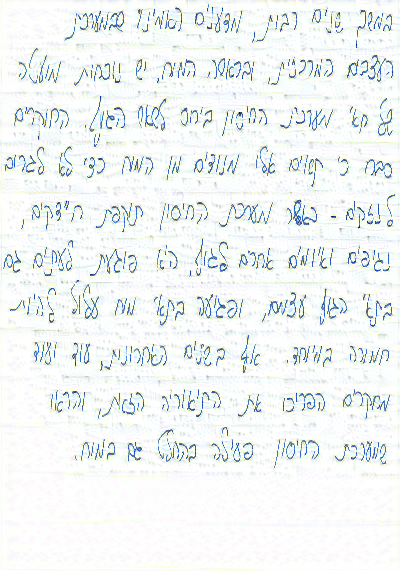 במשך שנים רבות, מדענים האמינו שבמערכת
העצבים המרכזית, ובראשה המוח, יש נוכחות מועטה
של תאי מערכת החיסון ביחס לשאר הגוף. החוקרים
סברו כי תאים אלו מנודים מן המוח כדי לא לגרום
לנזקים - כאשר מערכת החיסון תוקפת חיידקים,
נגיפים ואיומים אחרים לגוף, היא פוגעת לעתים גם
בתאי הגוף עצמם, ופגיעה בתאי מוח עלולה להיות
חמורה במיוחד. אך בשנים האחרונות, עוד ועוד
מחקרים הפריכו את התיאוריה הזאת, והראו
שמערכת החיסון פעילה בהחלט גם במוח.